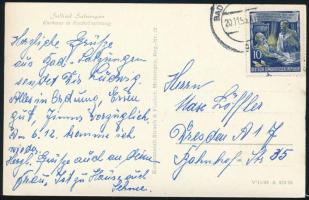 Solbad Salzungen
Kurhaus m. Kuche
Herzliche Grüße
aus Bad Salzungen
sendet Dir Ludwig
Alles in Ordnung, Essen
gut, Zimmer vorzüglich.
Am 6.12. komme ich
wieder.
Herzl. Grüße auch an Deine
Frau. Ist zu Hause auch
Schnee.
BAD
20.11.5
10
DEUTSCHE DEMOKRATISCHE REPUBLIK
Herrn
Max Löffler
Dresden A 17
Bahnhof-Str 35